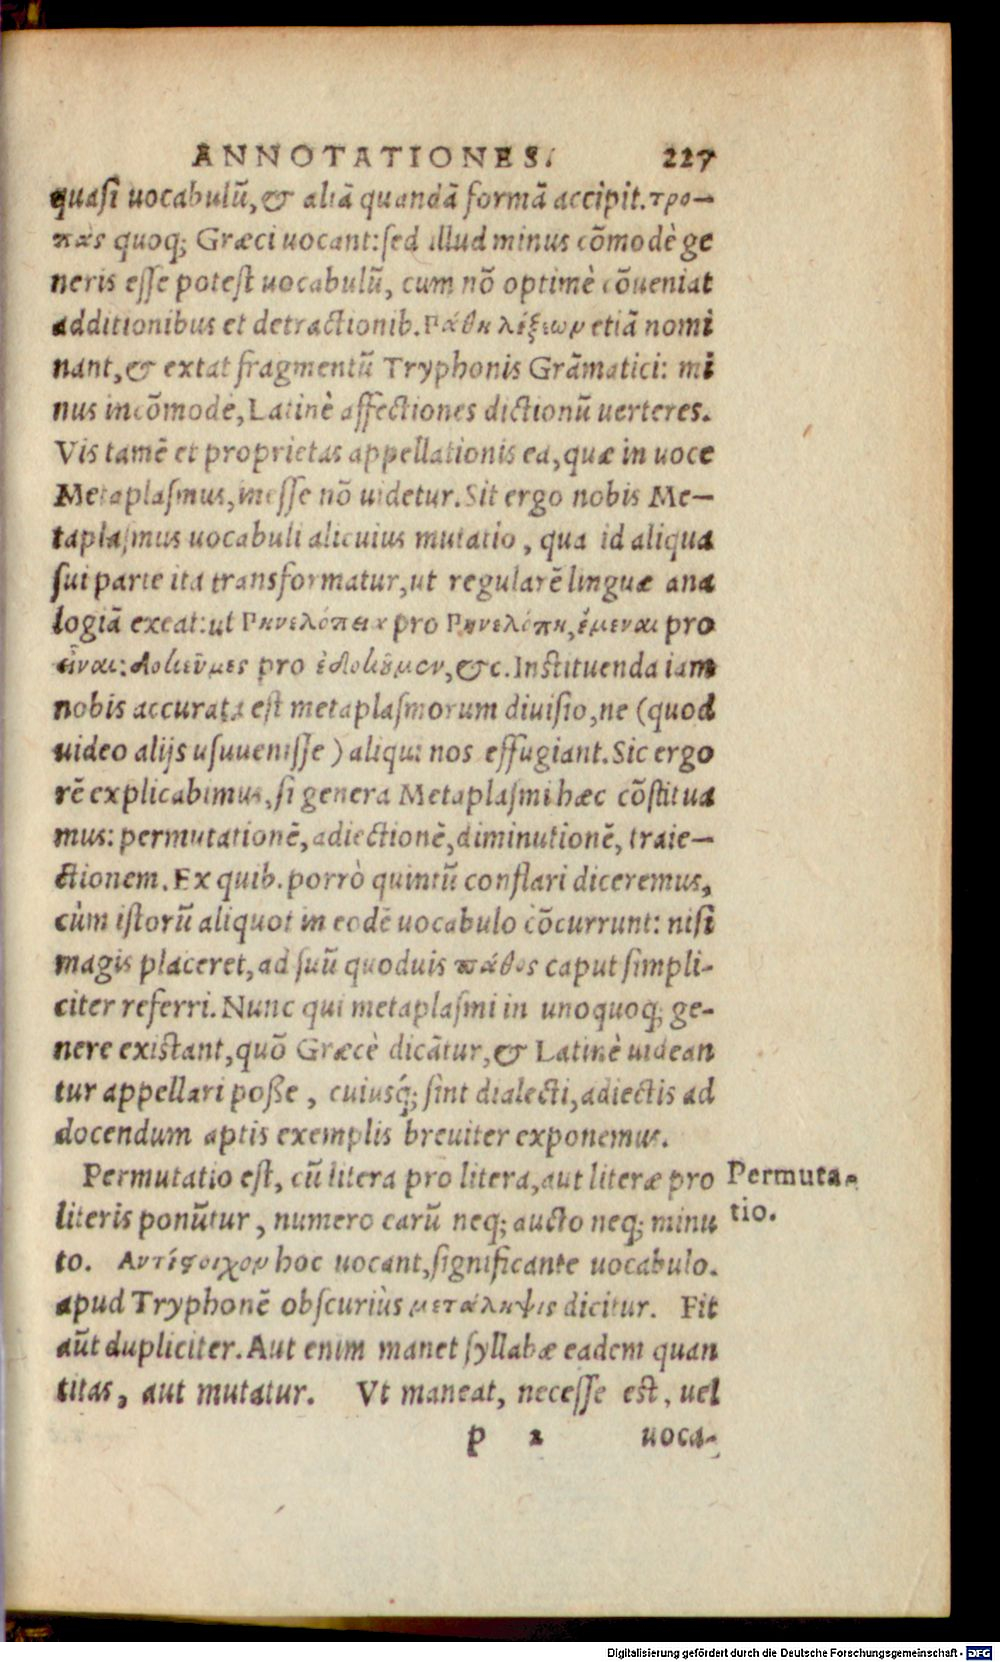 ANNOTATIONES. 227
quasi uocabulū, & aliā quandā formā accipit. τρο—
πὰς quoq; Græci uocant: sed illud minus cōmodè ge
neris esse potest uocabulū, cum nō optimè cōueniat
additionibus et detractionib. Πάθη λέξεων etiā nomi
nant, & extat fragmentū Tryphonis Grāmatici: mi
nus incōmodè, Latinè affectiones dictionū uerteres.
Vis tamē et proprietas appellationis ea, quæ in uoce
Metaplasmus, inesse nō uidetur. Sit ergo nobis Me—
taplasmus uocabuli alicuius mutatio, qua id aliqua
sui parte ita transformatur, ut regularē linguæ ana
logiā exeat: ut Πηνελόπεια pro Πηνελόπη, ἔμεναι pro
εἶναι: pro &c. Instituenda iam
nobis accurata est metaplasmorum diuisio, ne (quod
uideo alijs usuuenisse) aliqui nos effugiant. Sic ergo
rē explicabimus, si genera Metaplasmi hæc cōstitua
mus: permutationē, adiectionē, diminutionē, traie—
ctionem. Ex quib. porrò quintū conflari diceremus,
cùm istorū aliquot in eodē uocabulo cōcurrunt: nisi
magis placeret, ad suū quoduis πάθος caput simpli-
citer referri. Nunc qui metaplasmi in unoquoq; ge-
nere existant, quō Græcè dicātur, & Latinè uidean
tur appellari posse, cuiusq́; sint dialecti, adiectis ad
docendum aptis exemplis breuiter exponemus.
Permutatio est, cū litera pro litera, aut literæ pro
literis ponūtur, numero earū neq; aucto neq; minu
to. Αντίϛοιχον hoc uocant, significante uocabulo.
apud Tryphonē obscuriùs μετάληψις dicitur. Fit
aūt dupliciter. Aut enim manet syllabæ eadem quan
titas, aut mutatur. Vt maneat, necesse est, uel
p 2 uoca-
Permuta-
tio.
Digitalisierung gefördert durch die Deutsche Forschungsgemeinschaft - DFG